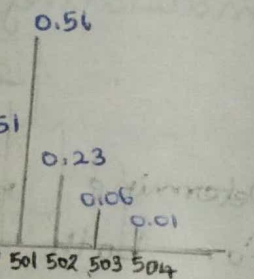 0.56
51
0.23
0.06
0.01
501 502 503 504